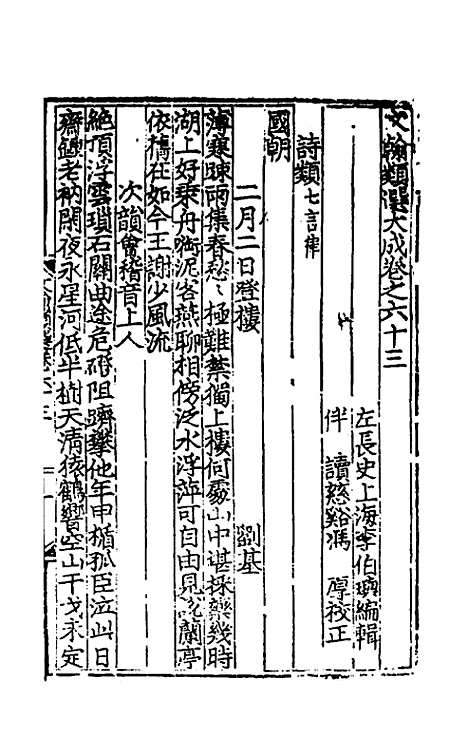 文翰類選大成卷之六十三
左長史上海李伯璵編輯
伴讀慈谿馮厚校正
詩類七言律
國朝
二月二日登樓　劉基
薄寒疎雨集春愁〻極難禁獨上樓何處山中堪採藥幾時
湖上好乘舟啣泥客燕聊相傍泛水浮萍可自由見說蘭亭
依舊在如今王謝少風流
次韻會稽音上人
絶頂浮雲瑣石關曲途危磴阻躋攀他年甲楯孤臣泣此日
齋鍾老衲閑夜永星河低半樹天清猿鶴響空山干戈未定